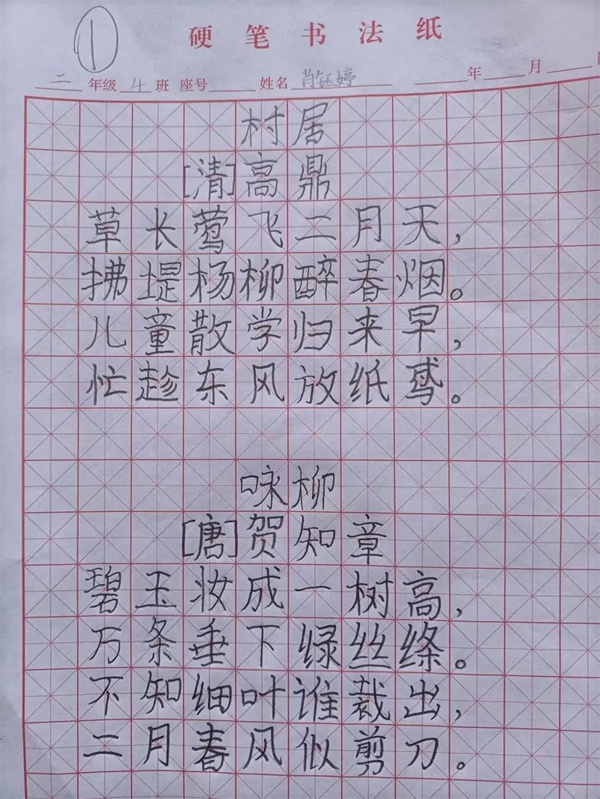 ①
硬笔书法纸
二年级 4班 座号 姓名 肖钰婷 年 月
村居
[清]高鼎
草长莺飞二月天，
拂堤杨柳醉春烟。
儿童散学归来早，
忙趁东风放纸鸢。
咏柳
[唐]贺知章
碧玉妆成一树高，
万条垂下绿丝绦。
不知细叶谁裁出，
二月春风似剪刀。